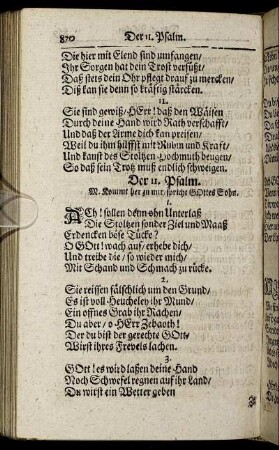 870 Der 11. Psalm.
Die hier mit Elend sind umfangen/
Ihr Sorgen hat dein Trost versüßt/
Daß stets dein Ohr pflegt drauf zu mercken/
Diß kan sie denn so kräftig stärcken.
12.
Sie sind gewiß/ HErr! daß den Wäisen
Durch deine Hand wird Rath verschafft/
Und daß der Arme dich kan preisen/
Weil du ihm hilfft mit Ruhm und Kraft/
Und kanst des Stoltzen Hochmuth beugen/
So daß sein Trotz muß endlich schweigen.
Der 11. Psalm.
M. Kommt her zu mir/ spricht GOttes Sohn.
1.
ACh! sollen denn ohn Unterlaß
Die Stoltzen sonder Ziel und Maaß
Erdencken böse Tücke?
O GOtt! wach auf/ erhebe dich/
Und treibe die/ so wieder mich/
Mit Schand und Schmach zu rücke.
2.
Sie reissen fälschlich um den Grund/
Es ist voll Heucheley ihr Mund/
Ein offnes Grab ihr Rachen/
Du aber/ o HErr Zebaoth!
Der du bist der gerechte GOtt/
Wirst ihres Frevels lachen.
3.
GOtt! es wird laßen deine Hand
Noch Schwefel regnen auf ihr Land/
Du wirst ein Wetter geben